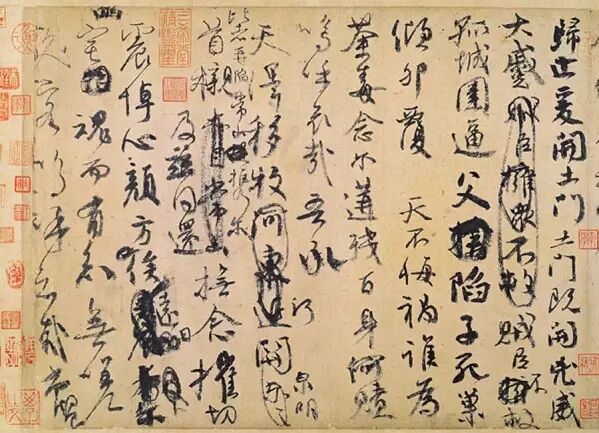 歸止爰開土門土門既開凶威
大蹙賊臣擁眾不救賊臣不救
孤城圍逼父陷子死巢
傾卵覆天不悔禍誰為
荼毒念爾遘殘百身何贖
嗚呼哀哉吾承
天澤移牧河東近河關
泉明
比者再陷常山攜爾
首櫬亦自常山撫念摧切
及茲同還
震悼心顏方俟遠日
宅魂而有知無嗟
久客嗚呼哀哉尚饗